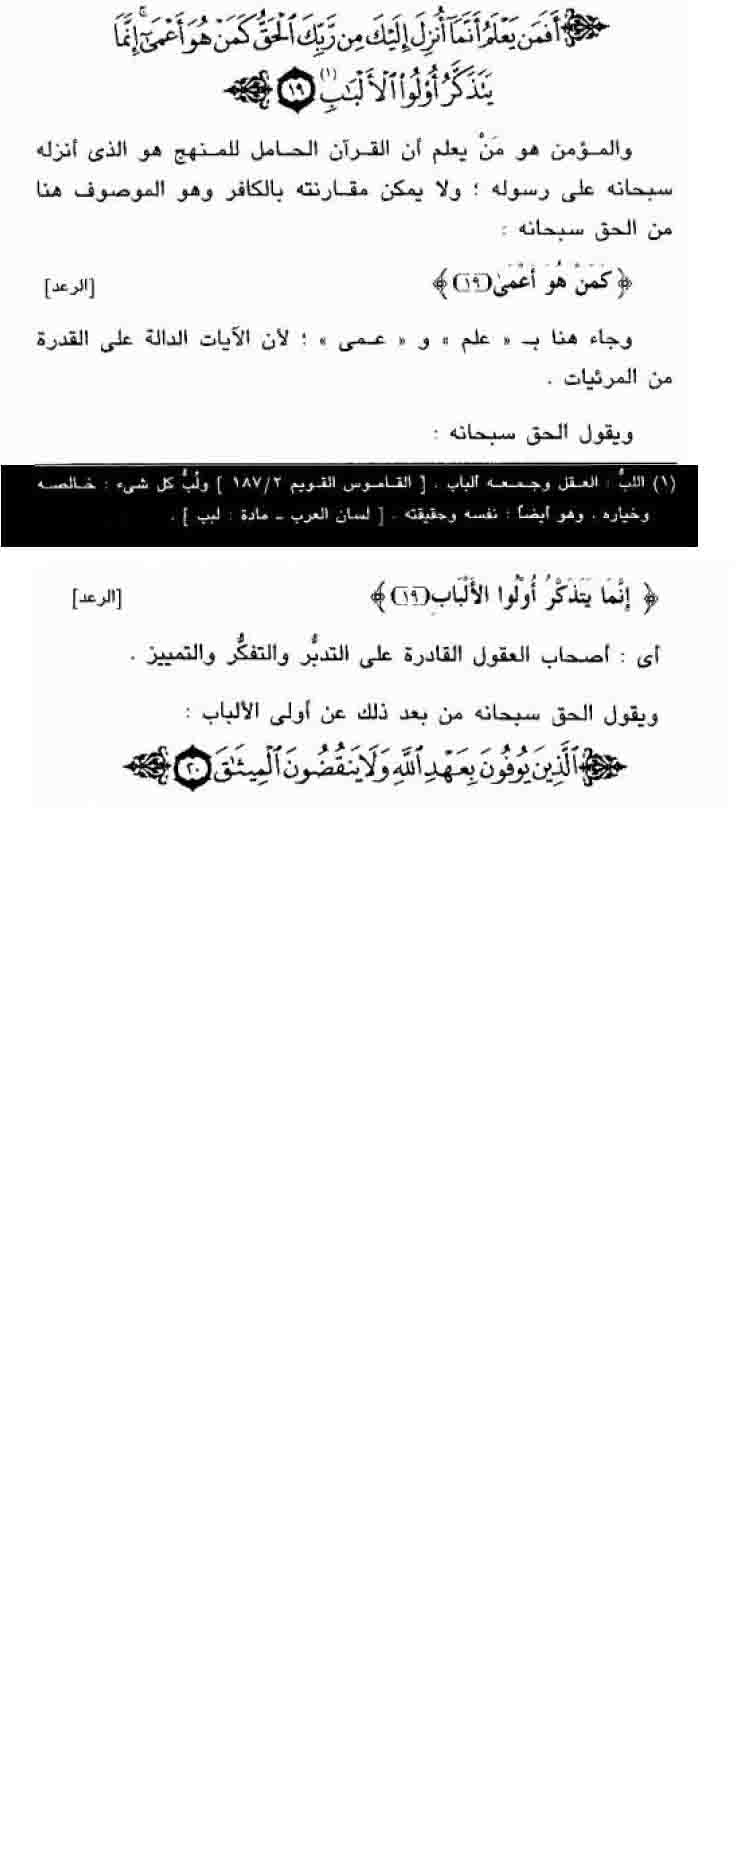 ﴿ أَفَمَن يَعْلَمُ أَنَّمَآ أُنزِلَ إِلَيْكَ مِن رَّبِّكَ ٱلْحَقُّ كَمَنْ هُوَ أَعْمَىٰٓ ۚ إِنَّمَا
يَتَذَكَّرُ أُو۟لُوا۟ ٱلْأَلْبَٰبِ (١) ١٩ ﴾
والمؤمن هو مَنْ يعلم أن القرآن الحامل للمنهج هو الذى أنزله
سبحانه على رسوله ؛ ولا يمكن مقارنته بالكافر وهو الموصوف هنا
من الحق سبحانه :
﴿ كَمَنْ هُوَ أَعْمَىٰ (١٩) ﴾ [الرعد]
وجاء هنا بـ « علم » و « عمى » ؛ لأن الآيات الدالة على القدرة
من المرئيات .
ويقول الحق سبحانه :
(١) اللبُّ : العقل وجمعه ألباب . [ القاموس القويم ١٨٧/٢ ] ولُبُّ كل شىء : خالصه
وخياره . وهو أيضاً : نفسه وحقيقته . [ لسان العرب - مادة : لبب ] .
﴿ إِنَّمَا يَتَذَكَّرُ أُوْلُوا الأَلْبَابِ (١٩) ﴾ [الرعد]
أى : أصحاب العقول القادرة على التدبُّر والتفكُّر والتمييز .
ويقول الحق سبحانه من بعد ذلك عن أولى الألباب :
﴿ ٱلَّذِينَ يُوفُونَ بِعَهْدِ ٱللَّهِ وَلَا يَنقُضُونَ ٱلْمِيثَٰقَ ٢٠ ﴾